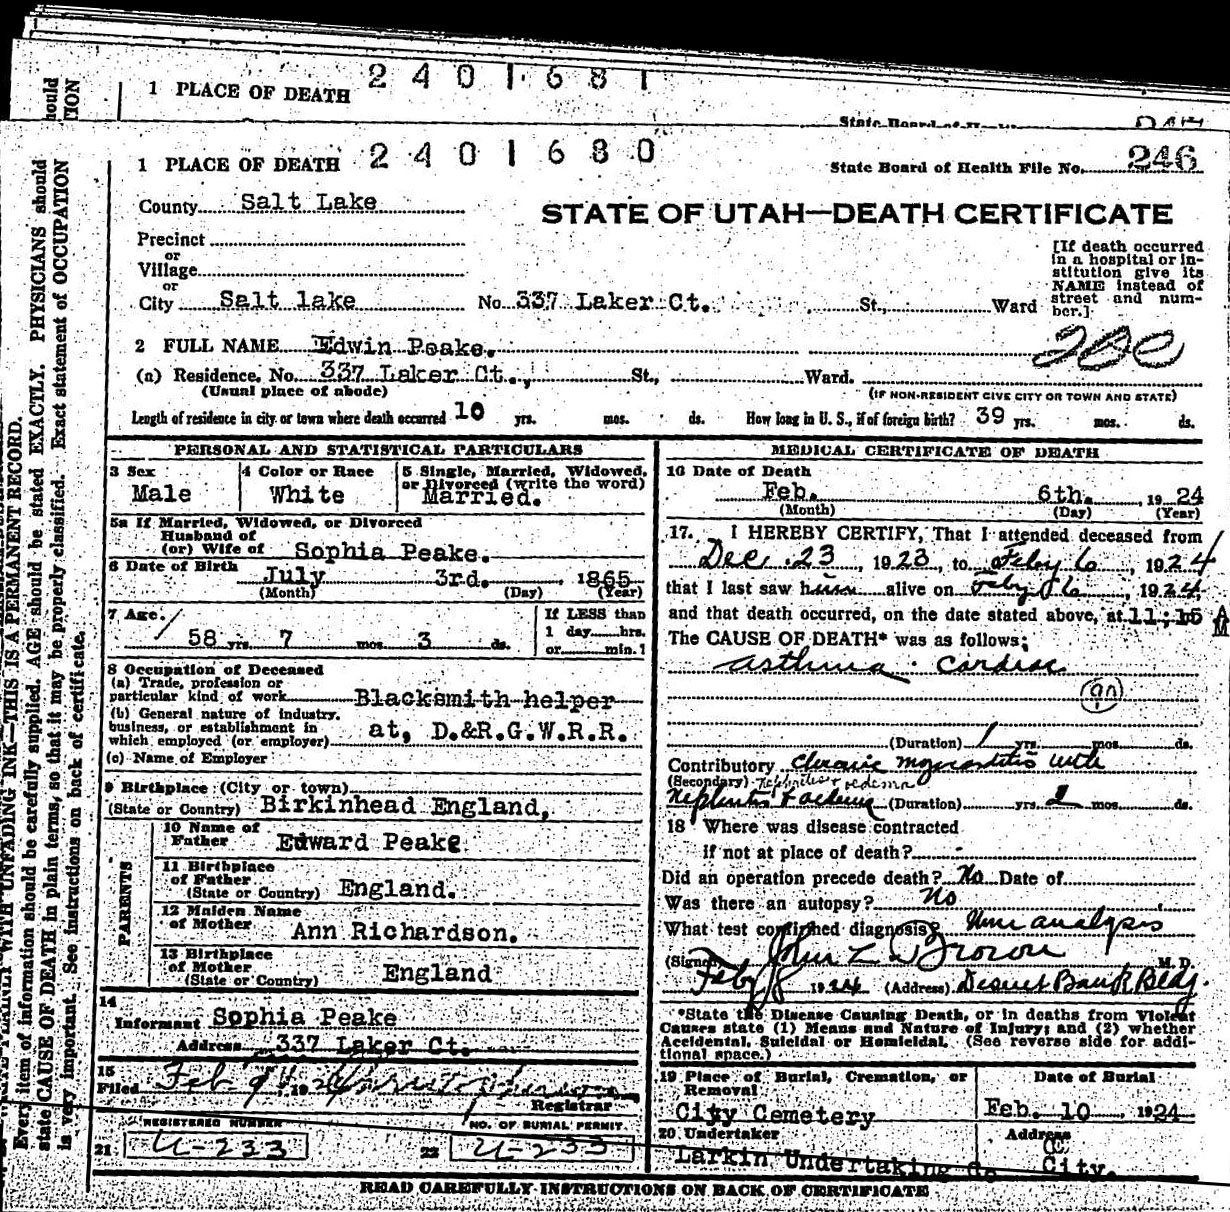 2 4 0 1 6 8 1
1 PLACE OF DEATH
State Board of
2 4 0 1 6 8 0
1 PLACE OF DEATH
State Board of Health File No. 246
County Salt Lake
STATE OF UTAH—DEATH CERTIFICATE
Precinct
or
Village
or
City Salt lake No. 337 Laker Ct. St., Ward
[If death occurred
in a hospital or in-
stitution give its
NAME instead of
street and num-
ber.]
2 FULL NAME Edwin Peake.
(a) Residence. No. 337 Laker Ct., St., Ward.
(Usual place of abode)
(IF NON-RESIDENT GIVE CITY OR TOWN AND STATE)
Length of residence in city or town where death occurred 10 yrs. mos. ds. How long in U. S., if of foreign birth? 39 yrs. mos. ds.
PERSONAL AND STATISTICAL PARTICULARS
3 Sex
Male
4 Color or Race
White
5 Single, Married, Widowed,
or Divorced (write the word)
Married.
5a If Married, Widowed, or Divorced
Husband of
(or) Wife of Sophia Peake.
6 Date of Birth
July 3rd. 1865
(Month) (Day) (Year)
7 Age.
58 yrs 7 mos 3 ds.
If LESS than
1 day hrs.
or min.
8 Occupation of Deceased
(a) Trade, profession or
particular kind of work Blacksmith helper
(b) General nature of industry,
business, or establishment in
which employed (or employer) at, D.&R.G.W.R.R.
(c) Name of Employer
9 Birthplace (City or town)
(State or Country) Birkinhead England,
PARENTS
10 Name of
Father Edward Peake
11 Birthplace
of Father
(State or Country) England.
12 Maiden Name
of Mother Ann Richardson.
13 Birthplace
of Mother
(State or Country) England
14
Informant Sophia Peake
Address 337 Laker Ct.
15
Filed Feb 9th 1924
Registrar
REGISTERED NUMBER
21 U-233
NO. OF BURIAL PERMIT
22 U-233
MEDICAL CERTIFICATE OF DEATH
16 Date of Death
Feb. 6th. 1924
(Month) (Day) (Year)
17. I HEREBY CERTIFY, That I attended deceased from
Dec. 23, 1923, to Feby 6, 1924
that I last saw him alive on Feby 6, 1924
and that death occurred, on the date stated above, at 11;15 A M
The CAUSE OF DEATH* was as follows;
asthma. cardiac
90
(Duration) 1 yrs. mos. ds.
Contributory chronic myocarditis with
(Secondary) Nephritis + oedema
Nephritis + oedema (Duration) yrs. 2 mos. ds.
18 Where was disease contracted
if not at place of death? -
Did an operation precede death? No Date of
Was there an autopsy? No
What test confirmed diagnosis? Urine analysis
(Signed) John Z Brown M. D.
Feby 8 1924 (Address) Deseret Bank Bldg.
*State the Disease Causing Death, or in deaths from Violent
Causes state (1) Means and Nature of Injury; and (2) whether
Accidental, Suicidal or Homicidal. (See reverse side for addi-
tional space.)
19 Place of Burial, Cremation, or
Removal
City Cemetery
Date of Burial
Feb. 10, 1924
20 Undertaker
Larkin Undertaking Co
Address
City.
READ CAREFULLY INSTRUCTIONS ON BACK OF CERTIFICATE
WITH UNFADING INK—THIS IS A PERMANENT RECORD.
Every item of information should be carefully supplied. AGE should be stated EXACTLY. PHYSICIANS should
state CAUSE OF DEATH in plain terms, so that it may be properly classified. Exact statement of OCCUPATION
is very important. See instructions on back of certificate.